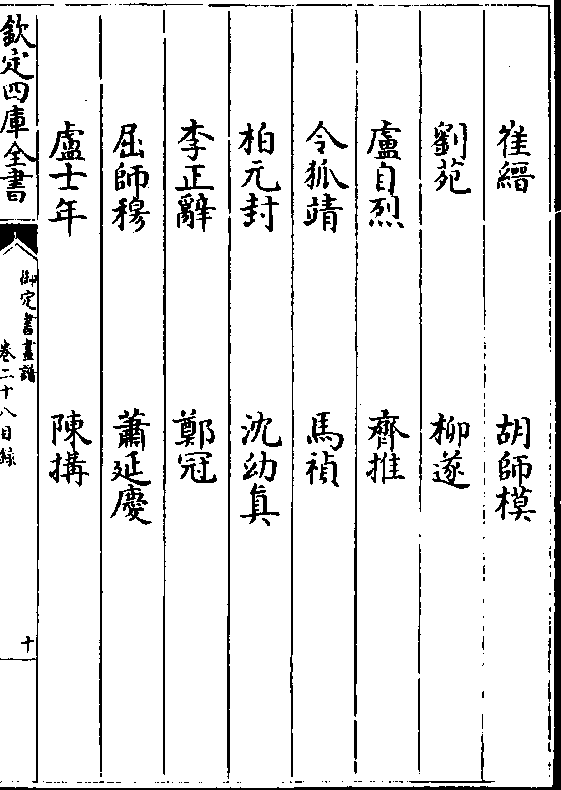 崔縉 胡師模
劉苑 柳遂
盧自烈 齊推
令狐靖 馬禎
柏元封 沈幼真
李正辭 鄭冠
屈師穆 蕭延慶
盧士年 陳搆
欽定四庫全書
御定書畫譜
卷二十八目録
十